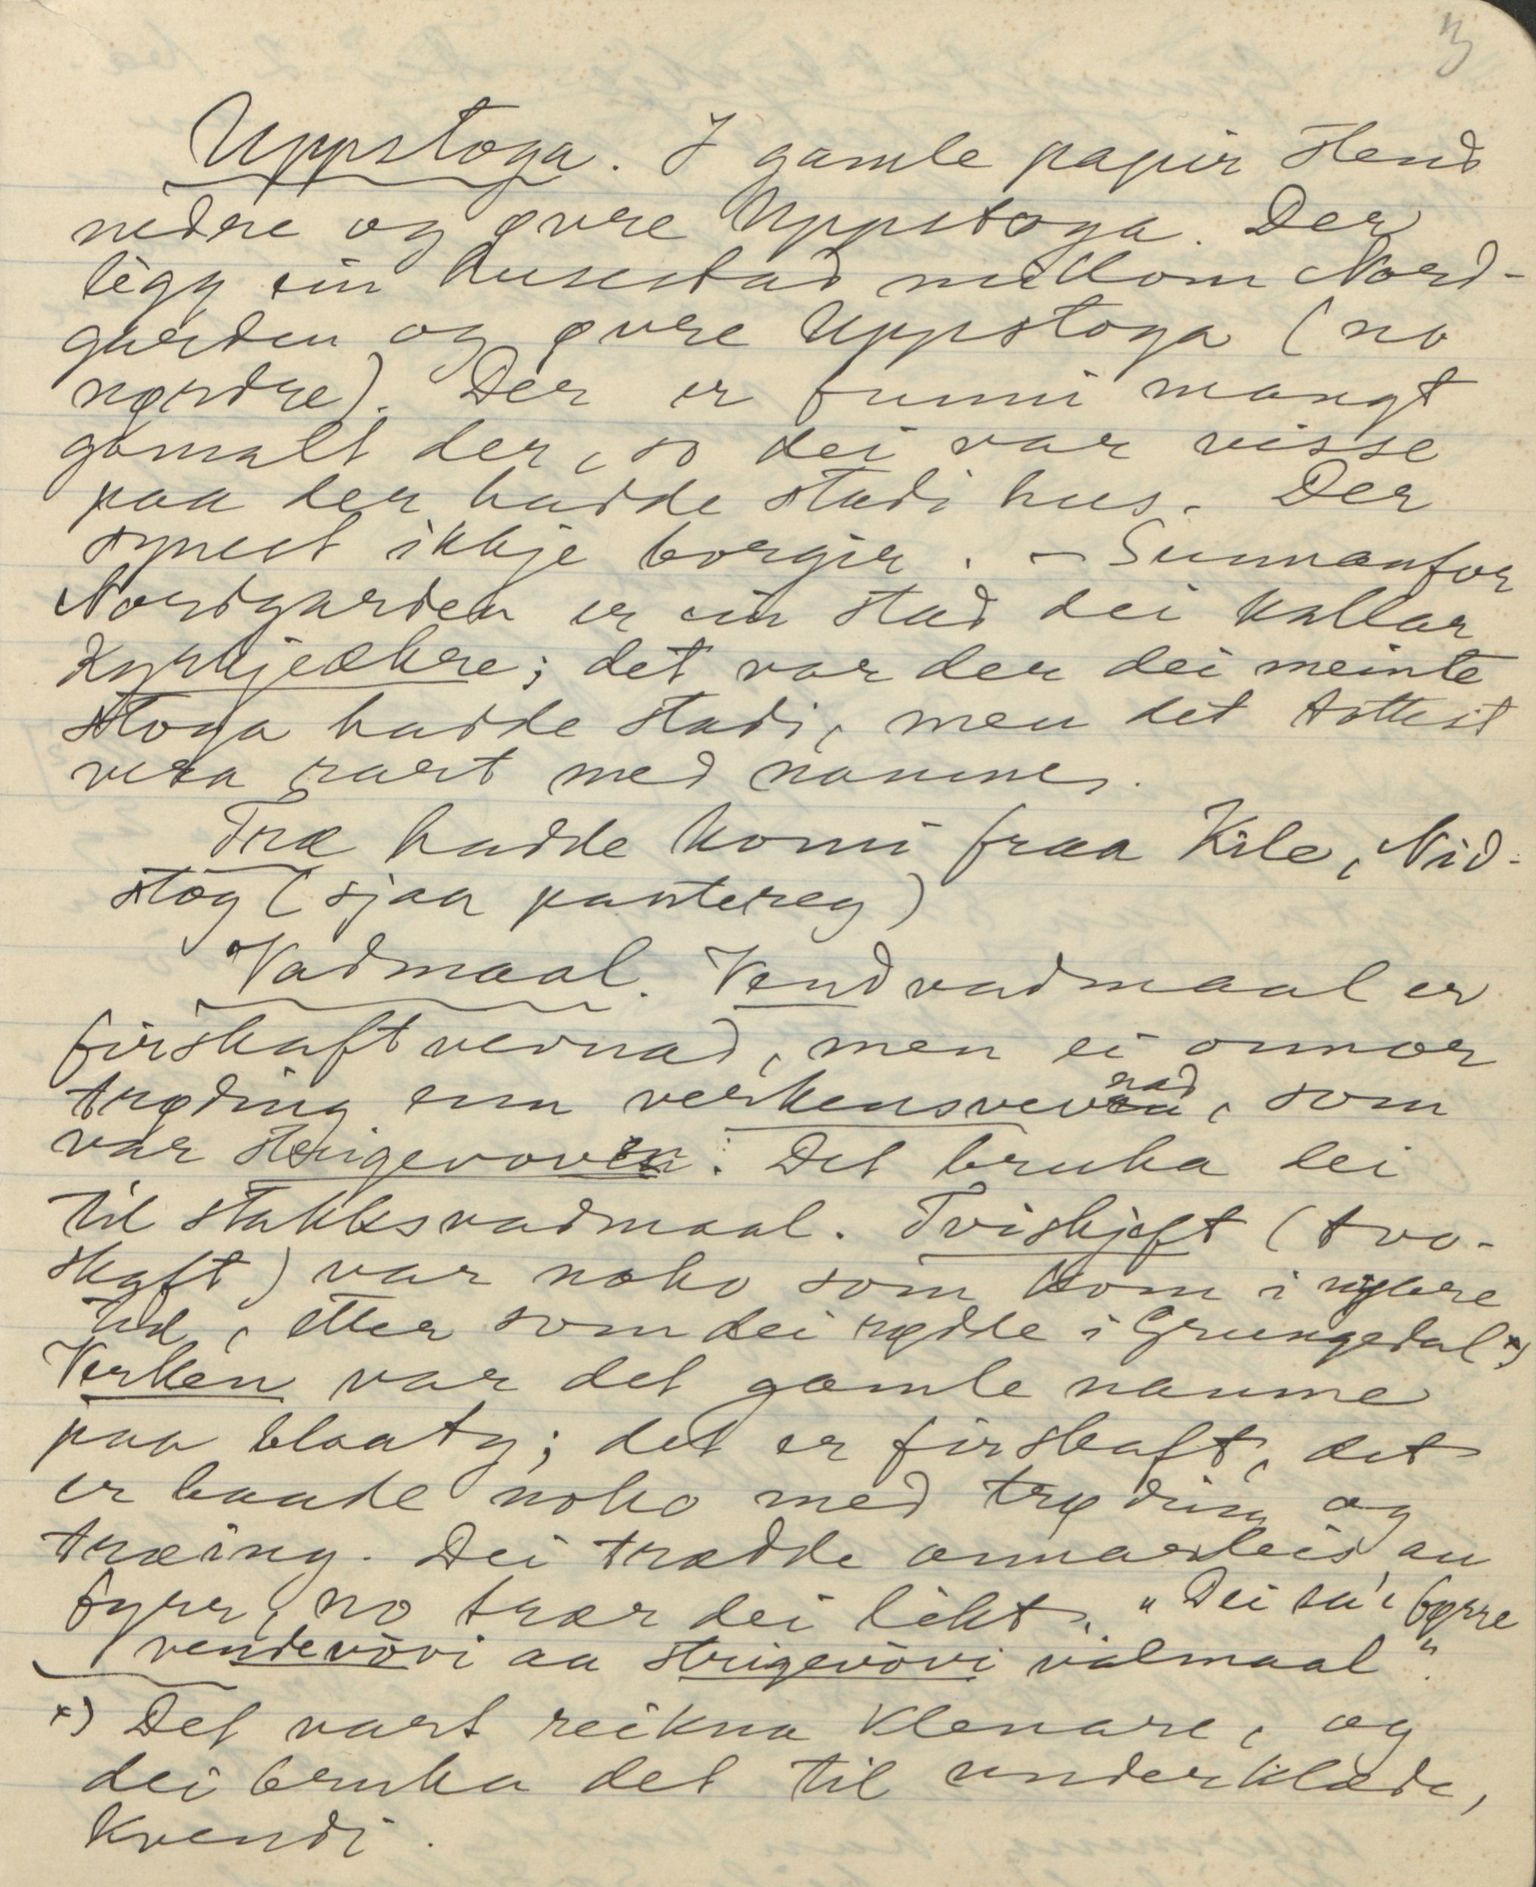 3
Uppstoga. I gamle papir stend
nedre og øvre Uppstoga. Der
ligg ein husestad millom Nord-
garden og øvre Uppstoga (no
nørdre). Der er funni mangt
gamalt der, so dei var visse
paa der hadde stadi hus. Der
synest ikkje borgir. – Sunnanfor
Nordgarden er ein stad dei kallar
Kyrkjeækre; det var der dei meinte
stoga hadde stadi, men det tottest
vera rart med namne.
Træ hadde komi fraa Kile, Nid-
stog (sjaa pantereg)
Vadmaal. Vendvadmaal er
firskaft vevnad, men ei onnor
trøding enn verkensvevnad, som
var strigevoven. Det bruka dei
til stakksvadmaal. Tviskjeft (tvo-
skaft) var noko som kom i nyare
tid, etter som dei rødde i Grungedal *)
Verken var det gamle namne
paa blaaty; det er firskaft, det
er baade noko med trøding og
træing. Dei trædde annarleis au
fyrr, no trær dei likt. "Dei sa' førre
vendevòvi aa strigevòvi valmaal".
*) Det vart reikna klenare, og
dei bruka det til underklæde,
kvendi.